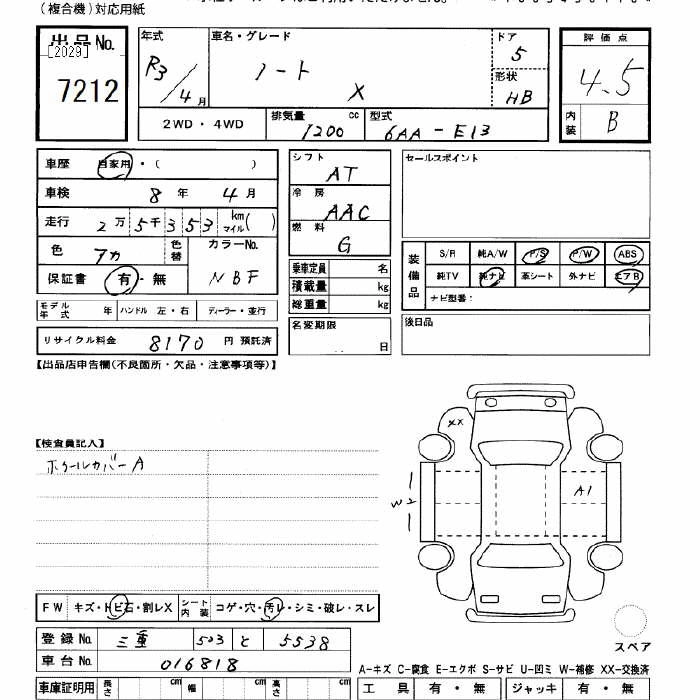 (複合機)対応用紙
出品No.
[2029]
7212
年式
R3/4月
車名・グレード
ノート X
ドア
5
形状
HB
評価点
4.5
内装
B
2WD・4WD
排気量 1200 cc
型式 6AA-E13
車歴 自家用・( )
車検 8年 4月
走行 2万5千353 km マイル( )
色 アカ
色替
カラーNo.
NBF
保証書 有・無
シフト
AT
冷房
AAC
燃料
G
乗車定員 名
積載量 kg
総重量 kg
名変期限
日
セールスポイント
装備品
S/R 純A/W P/S P/W ABS
純TV 純ナビ 革シート 外ナビ エアB
ナビ型番:
後日品
モデル年式 年 ハンドル 左・右 ディーラー・並行
リサイクル料金 8170 円 預託済
【出品店申告欄(不良箇所・欠品・注意事項等)】
【検査員記入】
ホイールカバーA
XX
W2
A1
FW キズ・トビ石・割レX シート内装 コゲ・穴・汚レ・シミ・破レ・スレ
登録No. 三重 503 と 5538
車台No. 016818
スペア
A-キズ C-腐食 E-エクボ S-サビ U-凹ミ W-補修 XX-交換済
車庫証明用 長さ cm 幅 cm 高さ cm
工具 有・無 ジャッキ 有・無